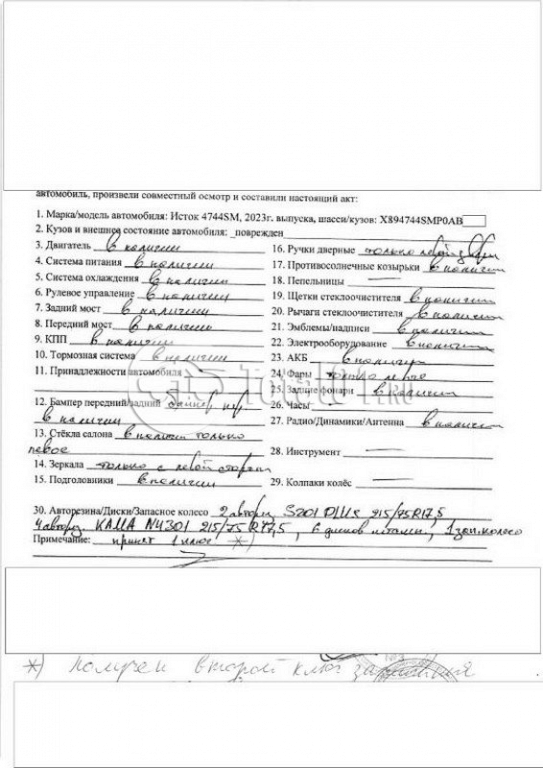 автомобиль, произвели совместный осмотр и составили настоящий акт:
1. Марка/модель автомобиля: Исток 4744SM, 2023г. выпуска, шасси/кузов: X894744SMP0AB
2. Кузов и внешнее состояние автомобиля: _поврежден
3. Двигатель в наличии
4. Система питания в наличии
5. Система охлаждения в наличии
6. Рулевое управление в наличии
7. Задний мост в наличии
8. Передний мост в наличии
9. КПП в наличии
10. Тормозная система в наличии
11. Принадлежности автомобиля
12. Бампер передний/задний
в наличии
13. Стёкла салона в наличии только
левое
14. Зеркала только с левой стороны
15. Подголовники в наличии
16. Ручки дверные только левой двери
17. Противосолнечные козырьки в наличии
18. Пепельницы —
19. Щетки стеклоочистителя в наличии
20. Рычаги стеклоочистителя в наличии
21. Эмблемы/надписи в наличии
22. Электрооборудование в наличии
23. АКБ в наличии
24. Фары только левое
25. Задние фонари в наличии
26. Часы
27. Радио/Динамики/Антенна в наличии
28. Инструмент —
29. Колпаки колёс —
30. Авторезина/Диски/Запасное колесо 2 авторез S201 215/75R17,5
4 автор. КАМА NU301 215/75 R17,5, 6 дисков штамп, 1 зап.колесо
Примечание: принят 1 ключ *)
*) Получен второй ключ зажигания